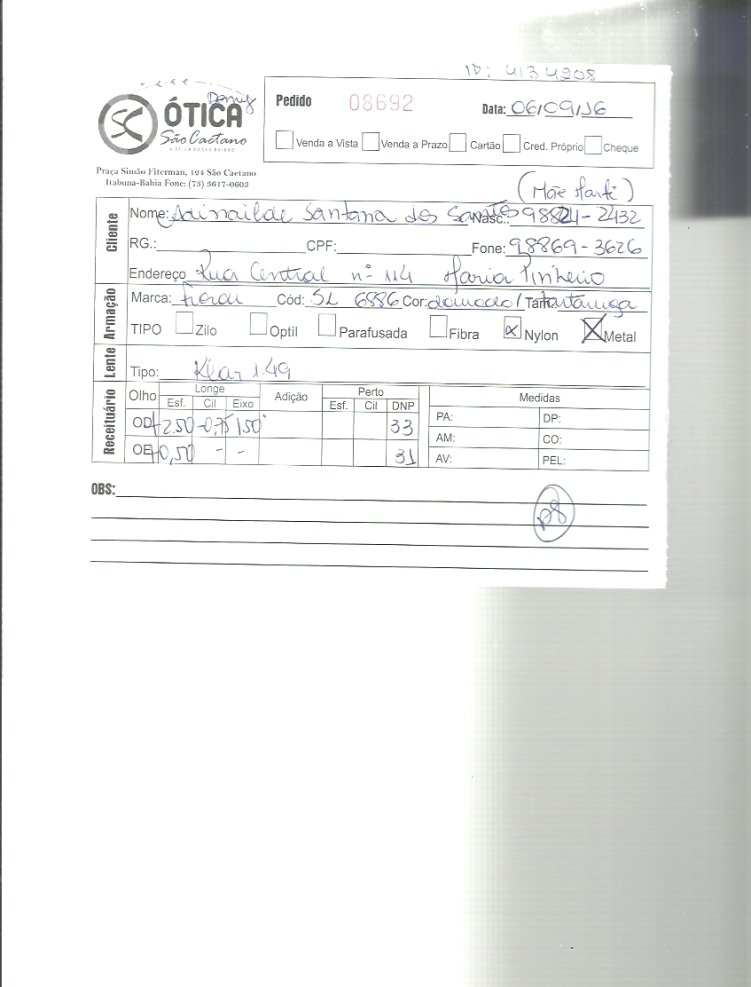 ID: 4134208
ÓTICA
São Caetano
Pedido 08692 Data: 06/09/16
Venda a Vista Venda a Prazo Cartão Cred. Próprio Cheque
Praça Simão Fiterman, 124 São Caetano
Itabuna-Bahia Fone: (73) 3617-0603
Cliente
Nome: Santana dos Santos Nasc.: 98824-2432
RG.: CPF: Fone: 98869-3626
Endereço Rua Central nº 114 Maria Pinheiro
Armação
Marca: Cód: SL 6886 Cor: dourado / Tam: Tartaruga
TIPO Zilo Optil Parafusada Fibra x Nylon X Metal
Lente
Tipo: Klar 1.49
Receituário
Olho Longe Adição Perto Medidas
Esf. Cil Eixo Esf. Cil DNP
OD +2.50 -0,75 150° 33 PA: DP:
AM: CO:
OE +0,50 - - 31 AV: PEL:
OBS: